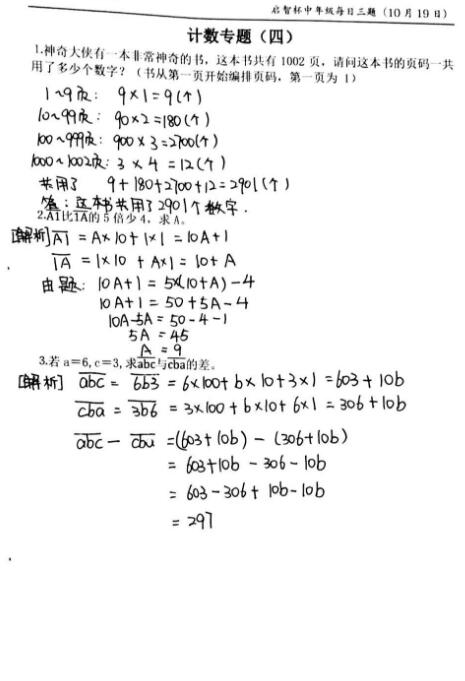 启智杯中年级每日三题（10月19日）
计数专题（四）
1.神奇大侠有一本非常神奇的书，这本书共有 1002 页，请问这本书的页码一共
用了多少个数字？（书从第一页开始编排页码，第一页为 1）
1~9页： 9×1=9(个)
10~99页： 90×2=180(个)
100~999页： 900×3=2700(个)
1000~1002页： 3×4=12(个)
共用了 9+180+2700+12=2901(个)
答：这本书共用了2901个数字.
2.A1比1A的 5 倍少 4，求 A。
[解析] A1 = A×10+1×1 = 10A+1
1A = 1×10 + A×1 = 10+A
由题： 10A+1 = 5×(10+A)-4
10A+1 = 50+5A-4
10A-5A = 50-4-1
5A = 45
A = 9
3.若 a=6,c=3,求abc与cba的差。
[解析] abc = 6b3 = 6×100+b×10+3×1 = 603+10b
cba = 3b6 = 3×100+b×10+6×1 = 306+10b
abc - cba =(603+10b)-(306+10b)
= 603+10b-306-10b
= 603-306+10b-10b
= 297